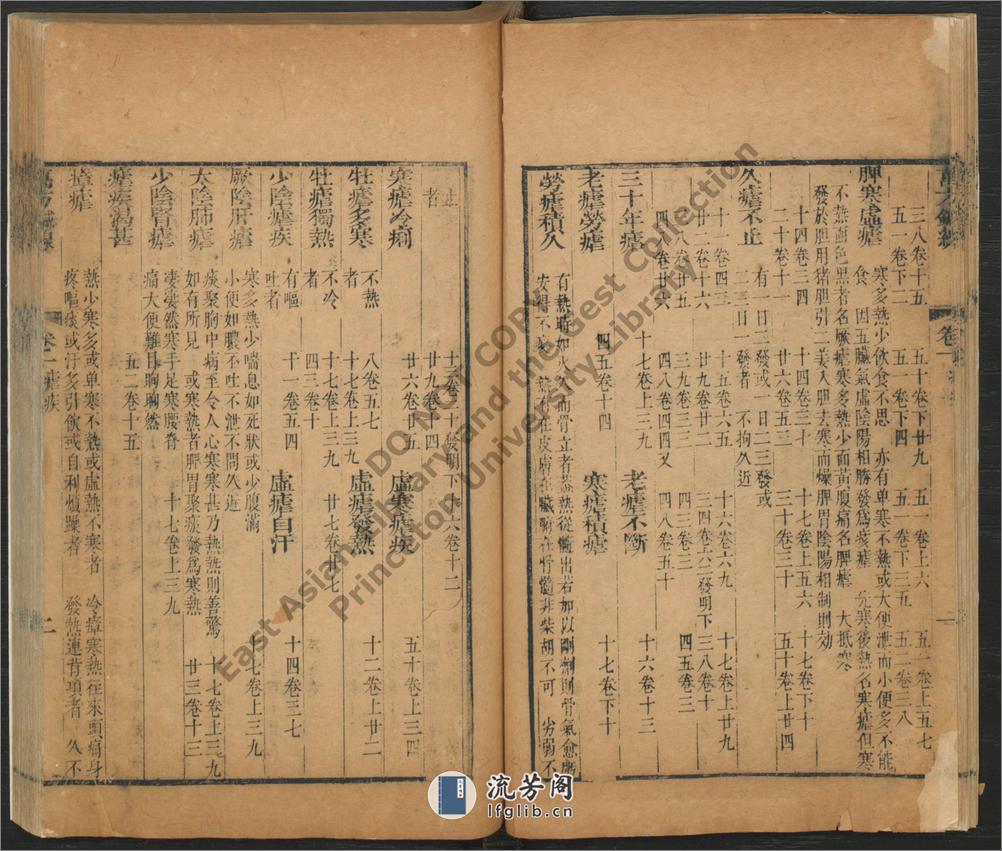 三八卷十五 五十卷下廿九 五一卷上六 五一卷上五七
五一卷下二 五一卷下四 五一卷下三五 五二卷三八
脾寒虛瘧 寒多熱少飲食不思 亦有单寒不熱或大便泄而小便多不能
食 因五臟氣虛陰陽相勝發爲痎瘧 先寒後熱名寒瘧但寒
不熱面色黑者名厥瘧寒多熱少面黃腹痛名脾瘧 大抵寒
發於胆用猪胆引二姜入胆去寒而燥脾胃陰陽相制則効
十四卷三四 十四卷三十 十七卷上五六 十七卷下十
二十卷十一 廿六卷五三 三十卷三十 五十卷上廿四
久瘧不止 有一日二發或一日二三發或
二三日一發者 不拘久近
十一卷四三 十一卷六五 十六卷六九 十七卷上廿九
廿二卷十六 廿九卷廿二 三四卷上六二發明下 三八卷十
三八卷廿五 三九卷三一 四三卷三三 四五卷三二
四六卷廿六 四八卷四四又 四八卷五十
三十年瘧 十七卷上三九 老瘧不断 十六卷十三
老瘧勞瘧 四五卷十四 寒瘧積瘧 十七卷下十
勞瘧積久 有熱時如火久而骨立者葢熱從髓出若如以剛劑則骨氣愈虧
安得不 熱有在皮膚在臟腑在骨髓非柴胡不可 劣弱不
止者 十三卷三十發明下 十六卷十二
廿九卷十四
寒瘧冷痢 廿六卷廿五 虛寒瘧疾 五十卷上三四
牡瘧多寒 不熱者 八卷五七
十七卷上三九 虛瘧發熱 十二卷上廿二
牡瘧獨熱 不冷者 十七卷上三九 廿七卷廿七
四三卷十一
少陰瘧疾 有嘔吐者 十一卷五四 虛瘧自汗 十四卷三七
厥陰肝瘧 寒多熱少喘息如死狀或少腹滿
小便如膿不吐不泄不問久近 十七卷上三九
太陰肺瘧 痰聚胸中病至令人心寒寒甚乃熱熱則善驚
如有所見 或寒熱者脾胃聚痰發爲寒熱 十七卷上三九
少陰腎瘧 凄凄然寒手足寒腰脊
痛大便難目眴眴然 十七卷上三九
瘧疾渴甚 五二卷十五
瘴瘧 熱少寒多或单寒不熱或虛熱不寒者 冷瘴寒熱往來頭痛身
疼嘔痰或汗多引飲或自利煩躁者 發熱連背項者 久不
卷一 瘧疾
二
East Asian Library and the Gest Collection
Princeton University Library
DO NOT COPY
流芳阁
lfglib.cn